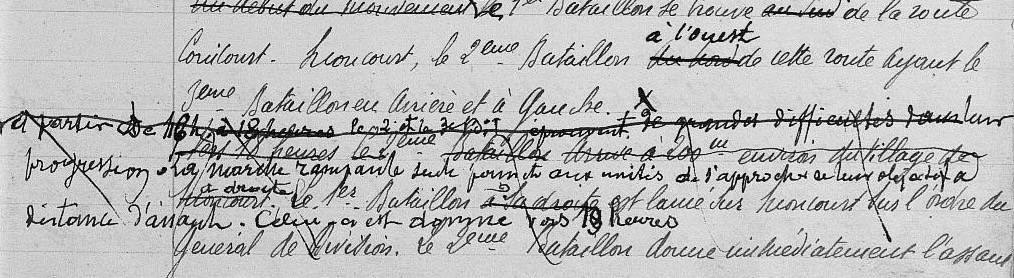 du début du mouvement, le 1er Bataillon se trouve au Sud de la route
à l'ouest
Concourt - Lioncourt, le 2eme Bataillon du nord de cette route ayant le
3eme Bataillon en Arrière et à Gauche. X
à partir de 18h à 18 heures le 2 et le 3e Bon éprouvent de grandes difficultés dans leur
Vers 18 heures le 2eme Bataillon Arrive à 200m environ du village de
progression. la marche rampante seule permet aux unités de s'approcher de leur objectif à
à droite
Lioncourt. Le 1er Bataillon à sa droite est lancé sur Lioncourt sur l'ordre du
distance d'assaut. Celui-ci est donné vers 19 heures
Général de Division. Le 2eme Bataillon donne immédiatement l'assaut